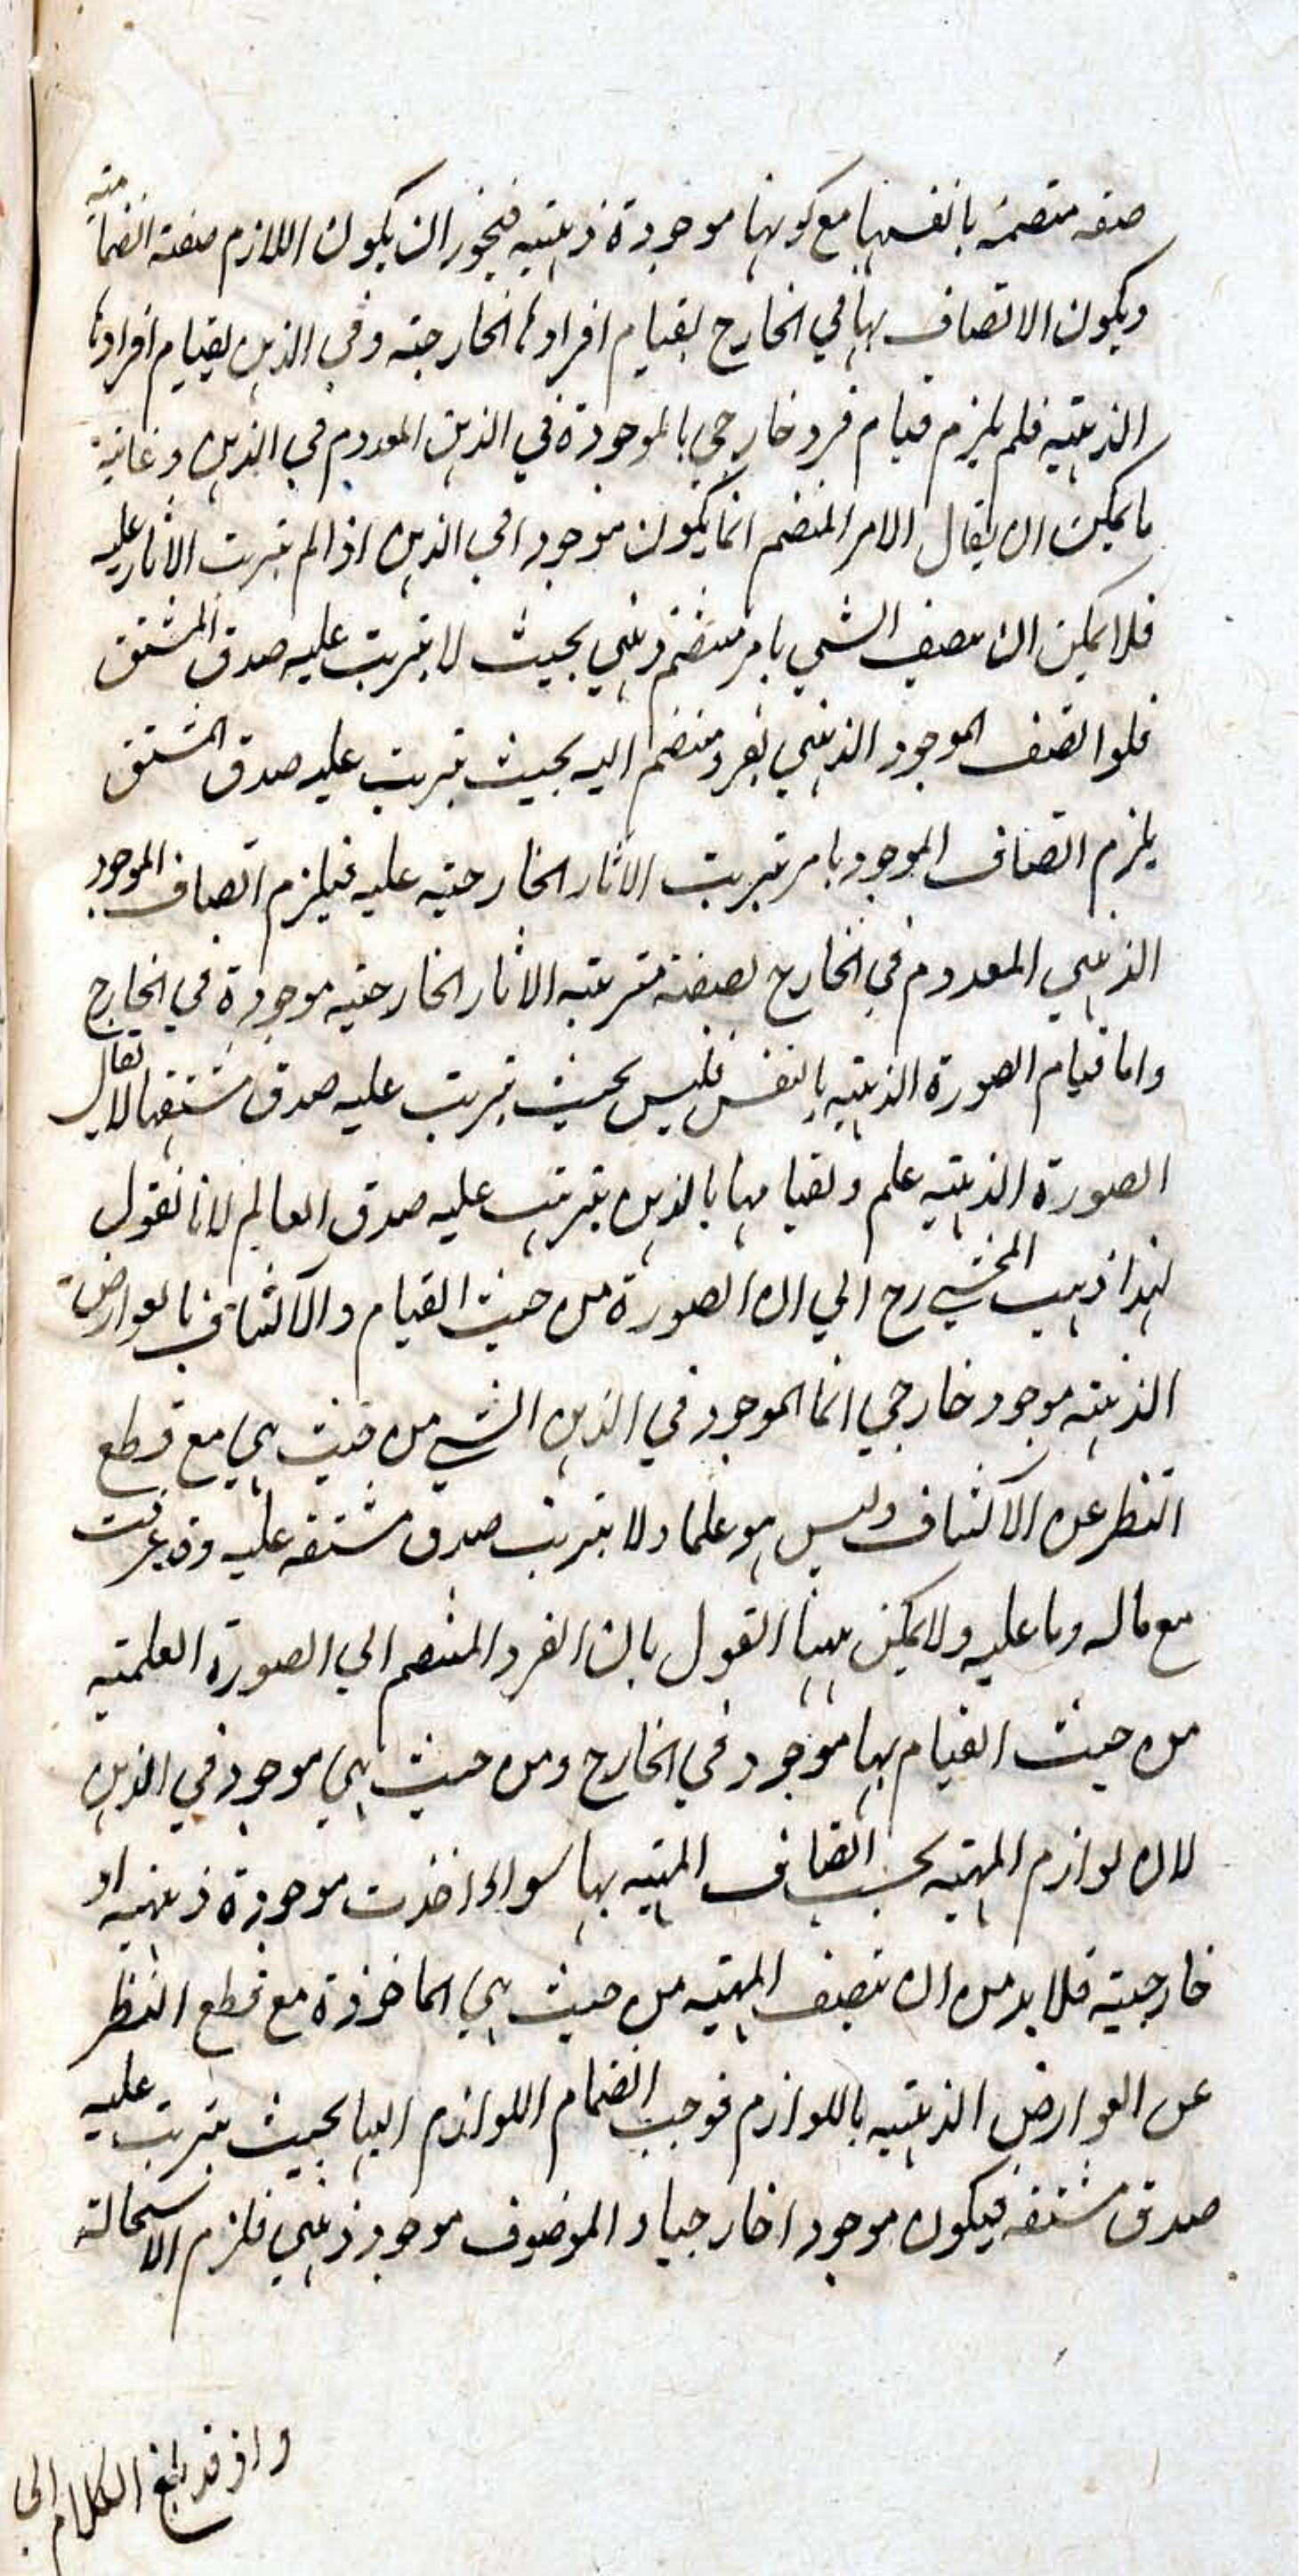 صفة منضمة بانفسها مع كونها موجودة ذهنية فيجوز ان يكون اللازم صفة انضمامية
ويكون الاتصاف بها في الخارج لقيام افرادها الخارجية وفي الذهن لقيام افرادها
الذهنية فلم يلزم قيام فرد خارجي بالموجودة في الذهن المعدوم في الذهن وغاية
ما يمكن ان يقال الامر المنضم انما يكون موجودا في الذهن اذا لم يترتب الاثار عليه
فلا يمكن ان يتصف الشي بامر منضم ذهني بحيث لا يترتب عليه صدق المشتق
فلو اتصف الموجود الذهني بفرد منضم اليه بحيث يترتب عليه صدق المشتق
يلزم اتصاف الموجود بامر يترتب الاثار الخارجية عليه فيلزم اتصاف الموجود
الذهني المعدوم في الخارج بصفة مترتبة الاثار الخارجية موجودة في الخارج
واما قيام الصورة الذهنية بالنفس فليس بحيث يترتب عليه صدق مشتقها لا يقال
الصورة الذهنية علم ولقيامها بالذهن يترتب عليه صدق العالم لانا نقول
لهذا ذهب المحشي رح الي ان الصورة من حيث القيام والاكتناف بالعوارض
الذهنية موجود خارجي انما الموجود في الذهن الشي من حيث هي مع قطع
النظر عن الاكتناف وليس هو علما ولا يترتب صدق مشتقه عليه وقد عرفت
مع ماله وما عليه ولا يمكن ههنا القول بان الفرد المنضم الي الصورة العلمية
من حيث القيام بها موجود في الخارج ومن حيث هي موجود في الذهن
لان لوازم المهية يجب اتصاف المهية بها سواء اخذت موجودة ذهنية او
خارجية فلا بد من ان تتصف المهية من حيث هي الماخوذة مع قطع النظر
عن العوارض الذهنية باللوازم فوجب انضمام اللوازم اليها بحيث يترتب عليه
صدق مشتقه فيكون موجودا خارجيا والموصوف موجود ذهني فلزم الاستحالة
واذ قد بلغ الكلام الي